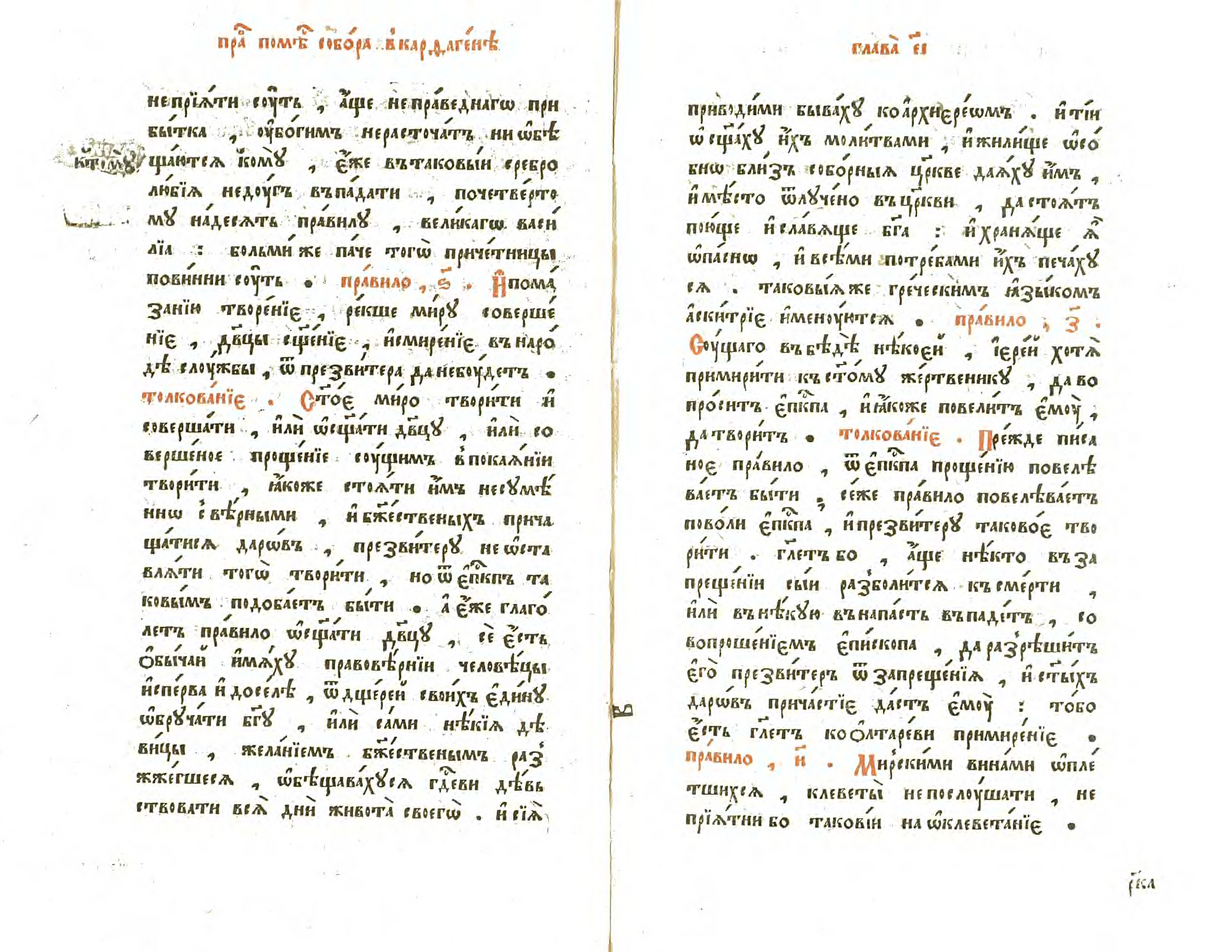 пра́ пом҄ѣ собо́ра вкарѳаге́нѣ
непрїѧ́ти сꙋ́ть , а́ще непра́веднагѡ при
бы́тка , ᲂубо́гимъ нерасточа́тъ ни ѡ҆бѣ
ща́ютсѧ комꙋ̀ , є҆́же въ таковы́й сребро
лю́бїѧ недꙋ́гъ въпа́дати , почетве́рто
мꙋ на́десѧть пра́вилꙋ , вели́кагѡ васи́
лїа : больми́ же па́че тогѡ̀ приче́тницы
пови́нни сꙋ́ть . пра́вило , ѕ҃ . И҆ пома
за́нїю творе́нїє , ре́кше ми́рꙋ соверше́
нїє , дв҃цы сщ҃е́нїє , и҆смире́нїє въ наро́
дѣ слꙋ́жбы , ѿ презви́тера да небꙋ́детъ .
толкова́нїє . Ст҃о́є ми́ро твори́ти и҆
соверша́ти , и҆лѝ ѡ҆сщ҃а́ти дв҃цꙋ , и҆́ли со
верше́ное проще́нїє сꙋ́щимъ в покаѧ́нїи
твори́ти , ꙗ҆́коже стоѧ́ти и҆̀мъ несꙋмѣ́
ннѡ с вѣ́рными , и҆ бж҃е́ственыхъ прича
ща́тисѧ даро́въ , презви́терꙋ не ѡ҆ста
влѧ́ти тогѡ̀ твори́ти , но ѿ є҆пⷭ҇кпъ та
ковы́мъ подоба́етъ бы́ти . а҆ є҆́же глаго́
летъ пра́вило ѡ҆сщ҃а́ти дв҃цꙋ , сѐ є҆́сть
Ѻ҆бы́чай и҆мѧ́хꙋ правовѣ́рнїи человѣ́цы
и҆спе́рва и҆ досе́лѣ , ѿ дще́рей свои́хъ є҆ди́нꙋ
ѡ҆брꙋча́ти бг҃ꙋ , и҆лѝ са́ми нѣ́кїѧ дѣ
ви́цы , жела́нїемъ бж҃е́ственымъ раз̾
жже́гшесѧ , ѡ҆бѣщава́хꙋсѧ гдⷭ҇еви дѣ́въ
ствовати всѧ̑ днѝ живота̀ своегѡ̀ . и҆ сїѧ̑
глава̀ е҃і
приводи́ми быва́хꙋ ко а҆рхиере́ѡмъ . и҆ ті́и
ѡ҆сщ҃а́хꙋ и҆́хъ моли́твами , и҆ жили́ще ѡ҆со́
бнѡ бли́зъ собо́рныѧ цр҃кве даѧ́хꙋ и҆́мъ ,
и҆ мѣ́сто ѿлꙋ́чено въ цр҃кви , да стоѧ́тъ
пою́ще и҆ сла́вѧще бг҃а : и҆ хранѧ́ще ѧ҆̀
ѡ҆па́снѡ , и҆ все́ми потре́бами и҆́хъ печа́хꙋ
сѧ . таковы́ѧ же гре́ческимъ ꙗ҆зы́комъ
а҆ски́трїє и҆менꙋ́ютсѧ . пра́вило , з҃ .
Сꙋ́щаго въ бѣ́дѣ нѣ́коей , їере́й хотѧ̀
примири́ти къ ст҃о́мꙋ же́ртвеникꙋ , да во
про́ситъ є҆пⷭ҇кпа , и҆ ꙗ҆́коже повели́тъ є҆мꙋ̀ ,
да твори́тъ . толкова́нїє . Пре́жде писа
ноє пра́вило , ѿ є҆пⷭ҇кпа проще́нїю повелѣ
ва́етъ бы́ти ; се́же пра́вило повелѣва́етъ
пово́ли є҆пⷭ҇кпа , и҆ презви́терꙋ таково́є тво
ри́ти . гл҃етъ бо , а́ще нѣ́кто въ за
преще́нїи сы́и разболи́тсѧ къ сме́рти ,
и҆лѝ въ нѣ́кꙋю въ напа́сть въпаде́тъ , со
вопроше́нїемъ є҆пи́скопа , да раз̾рѣши́тъ
є҆гѡ̀ презви́теръ ѿ запреще́нїѧ , и҆ ст҃ы́хъ
даро́въ прича́стїє да́стъ є҆мꙋ̀ : то́бо
є҆́сть гл҃етъ ко ѻ҆лтаре́ви примире́нїє .
пра́вило , и҃ . Мирски́ми вина́ми ѡ҆пле́
тшихсѧ , клеветы̀ непослꙋ́шати , не
прїѧ́тни бо таковíи на ѡ҆клевета́нїє .
рк҃а